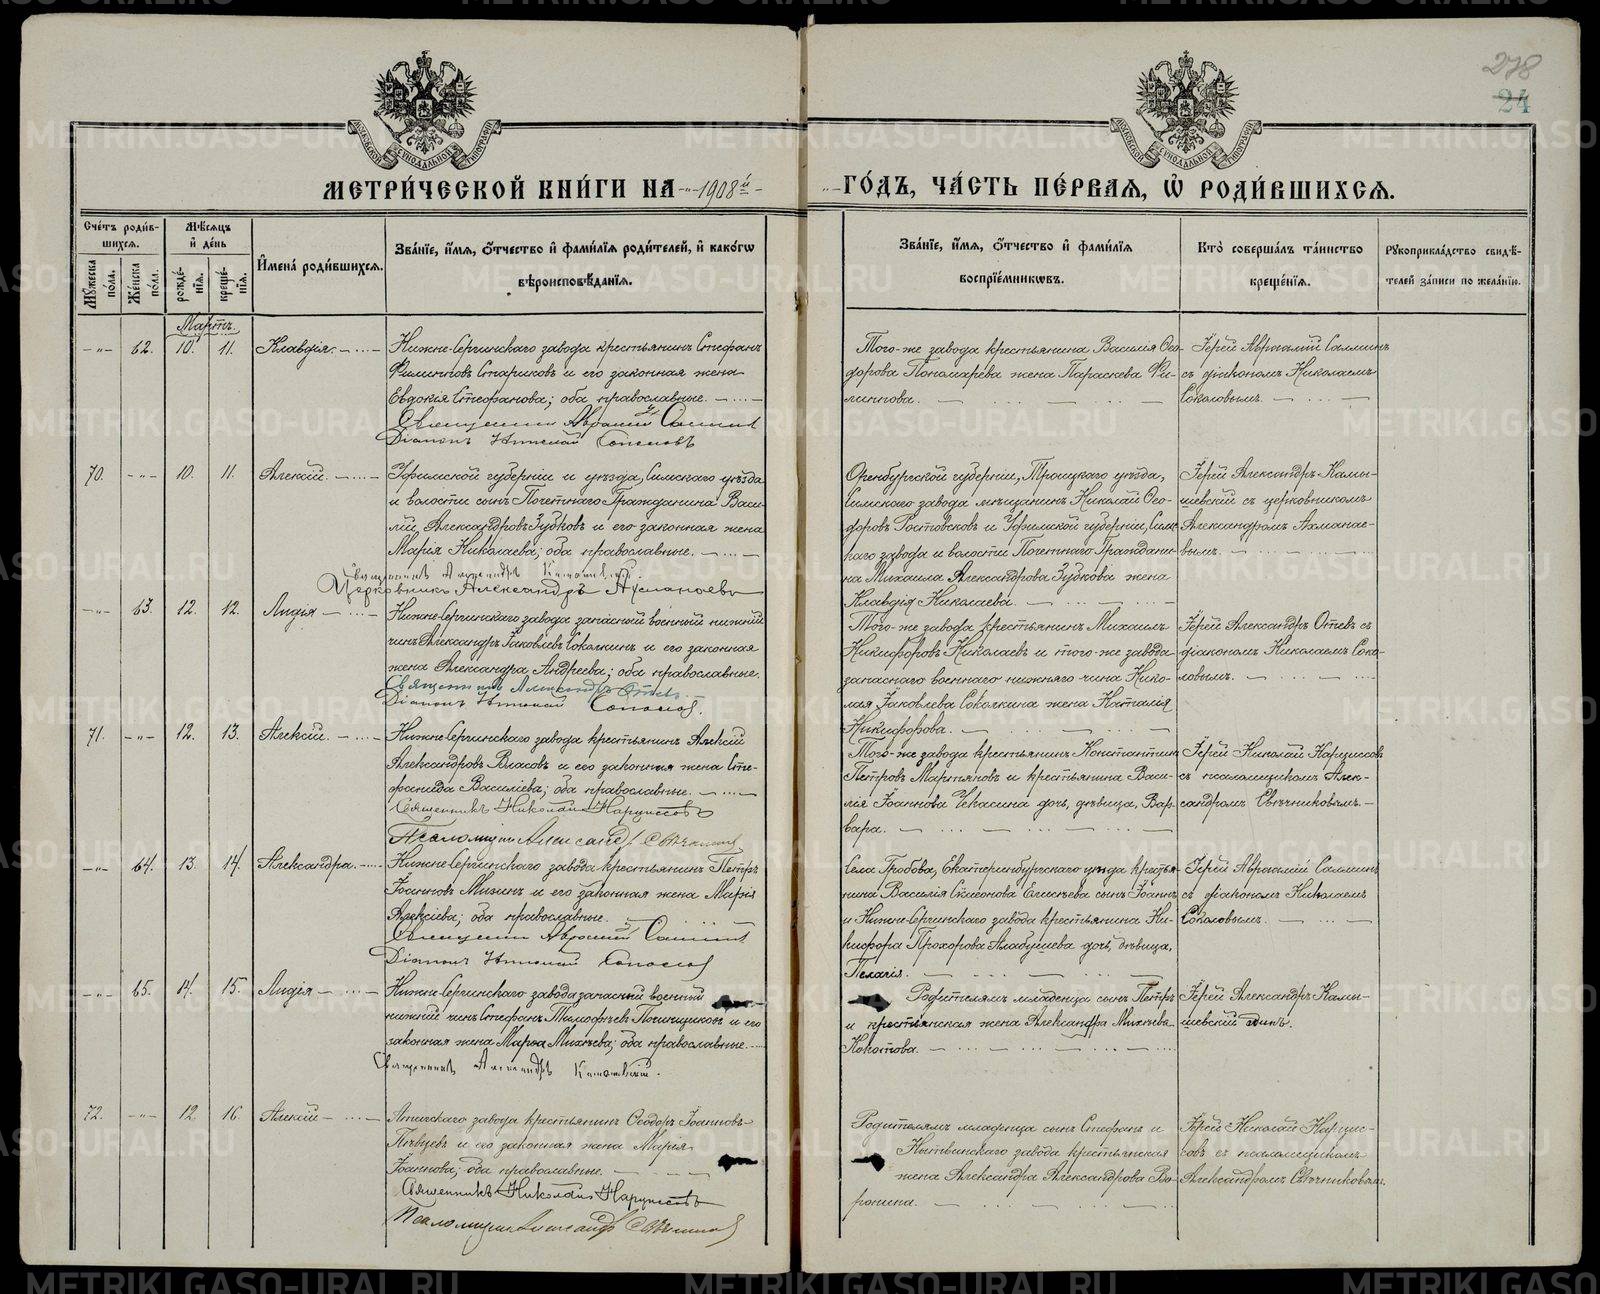 278
24
МЕТРИ́ЧЕСКОЙ КНИ́ГИ НА 1908й ГО́ДЪ, ЧА́СТЬ ПЕ́РВАЯ, Ѡ РОДИ́ВШИХСЯ.
Сче́тъ роди́в-
шихся.
Мꙋ́жеска по́ла.
Же́нска по́ла.
Мѣ́сяцъ
и де́нь
рожде́-
нїя.
креще́-
нїя.
И́мена́ роди́вшихся.
Зва́нїе, и́мя, о́тчество и фами́лїя роди́телей, и како́гѡ
вѣроисповѣ́данїя.
Зва́нїе, и́мя, о́тчество и фами́лїя
воспрїе́мникѡвъ.
Кто̀ соверша́лъ та́инство
креще́нїя.
Рꙋкоприкла́дство свидѣ́-
телей за́писи по жела́нїю.
Мартъ.
-"- 62. 10. 11. Клавдія.
Нижне-Сергинскаго завода крестьянинъ Стефанъ
Филипповъ Стариковъ и его законная жена
Евдокія Стефанова; оба православные.
Священникъ Авраамій
Діаконъ Николай Соколовъ
Того-же завода крестьянина Василія Ѳео-
дорова Пономарева жена Параскева Фи-
липпова.
Іерей Авраамій
съ діакономъ Николаемъ
Соколовымъ.
70. -"- 10. 11. Алексій.
Уфимской губерніи и уѣзда, Симскаго
и волости сынъ Почетнаго Гражданина Васи-
лій Александровъ Зубковъ и его законная жена
Марія Николаева; оба православные.
Священникъ Александръ Камышевскій.
Церковникъ Александръ
Оренбургской губерніи, Троицкаго уѣзда,
Симскаго завода мѣщанинъ Николай Ѳео-
доровъ Ростовсковъ и Уфимской губерніи, Сим-
скаго завода и волости Почетнаго Граждани-
на Михаила Александрова Зубкова жена
Клавдія Николаева.
Іерей Александръ Камы-
шевскій съ церковникомъ
Александромъ
-"- 63. 12. 12. Лидія
Нижне-Сергинскаго завода запасный военный нижній
чинъ Александръ Іаковлевъ Соколкинъ и его законная
жена Александра Андреева; оба православные.
Священникъ Александръ Отевъ.
Діаконъ Николай Соколовъ.
Того-же завода крестьянинъ Михаилъ
Никифоровъ Николаевъ и того-же завода
запаснаго военнаго нижняго чина Нико-
лая Іаковлева Соколкина жена Наталія
Никифорова.
Іерей Александръ Отевъ съ
діакономъ Николаемъ Соко-
ловымъ.
71. -"- 12. 13. Алексій.
Нижне-Сергинскаго завода крестьянинъ Алексій
Александровъ Власовъ и его законная жена Сте-
фанида Василіева; оба православные.
Священникъ Николай Нарциссовъ
Псаломщикъ Александръ Свѣчниковъ
Того-же завода крестьянинъ Константинъ
Петровъ Мартьяновъ и крестьянина Васи-
лія Іоаннова Чекасина дочь, дѣвица, Вар-
вара.
Іерей Николай Нарциссовъ
съ псаломщикомъ Алек-
сандромъ Свѣчниковымъ.
-"- 64. 13. 14. Александра.
Нижне-Сергинскаго завода крестьянинъ Петръ
Іоанновъ Мизинъ и его законная жена Марія
Алексіева; оба православные.
Священникъ Авраамій
Діаконъ Николай Соколовъ
Села Гробова, Екатеринбургскаго уѣзда крестья-
нина Василія Симеонова Елисѣева сынъ Іоаннъ
и Нижне-Сергинскаго завода крестьянина Ни-
кифора Прохорова Алабушева дочь, дѣвица,
Пелагія.
Іерей Авраамій
съ діакономъ Николаемъ
Соколовымъ.
-"- 65. 14. 15. Лидія
Нижне-Сергинскаго завода запасный военный
нижній чинъ Стефанъ Тимофѣевъ и его
законная жена Марѳа Михѣева; оба православные.
Священникъ Александръ Камышевскій.
Родителямъ младенца сынъ Петръ
и крестьянская жена Александра Михѣева
Кокотова.
Іерей Александръ Камы-
шевскій единъ.
72. -"- 12 16. Алексій
Атигскаго завода крестьянинъ Ѳеодоръ Іоанновъ
Пѣвцевъ и его законная жена Марія
Іоаннова; оба православные.
Священникъ Николай Нарциссовъ
Псаломщикъ Александръ Свѣчниковъ
Родителямъ младенца сынъ Стефанъ и
завода крестьянская
жена Александра Александрова Во-
ронина.
Іерей Николай Нарцис-
совъ съ псаломщикомъ
Александромъ Свѣчниковымъ.
METRIKI.GASO-URAL.RU